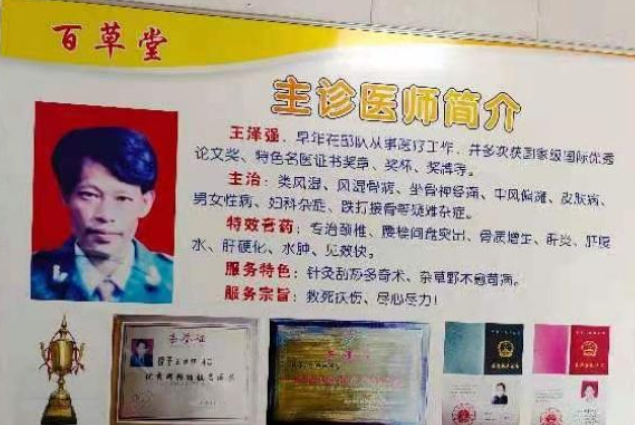 百草堂
主诊医师简介
王泽强，早年在部队从事医疗工作，并多次获国家级国际优秀
论文奖、特色名医证书奖章、奖杯、奖牌等。
主治：类风湿、风湿骨病、坐骨神经痛、中风偏瘫、皮肤病、
男女性病、妇科杂症、跌打接骨等疑难杂症。
特效膏药：专治颈椎、腰椎间盘突出、骨质增生、肝炎、肝腹
水、肝硬化、水肿、见效快。
服务特色：针灸刮痧多奇术、杂草野不愈苟病。
服务宗旨：救死扶伤、尽心尽力！